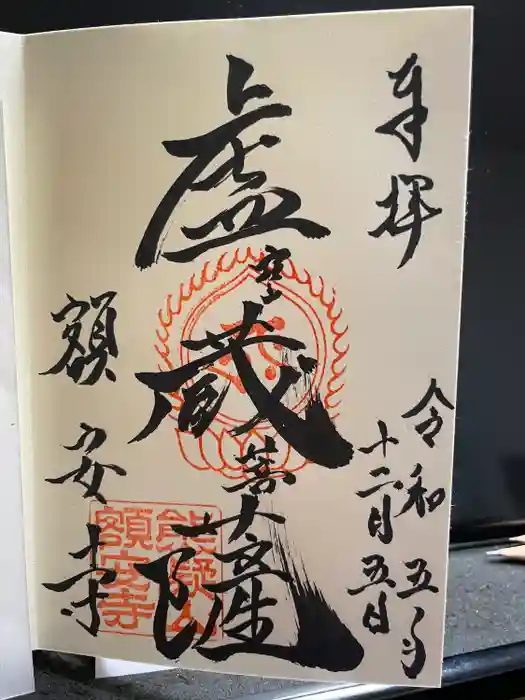 奉拝
令和五年
十二月五日
虚空蔵菩薩
額安寺
熊凝山
額安寺